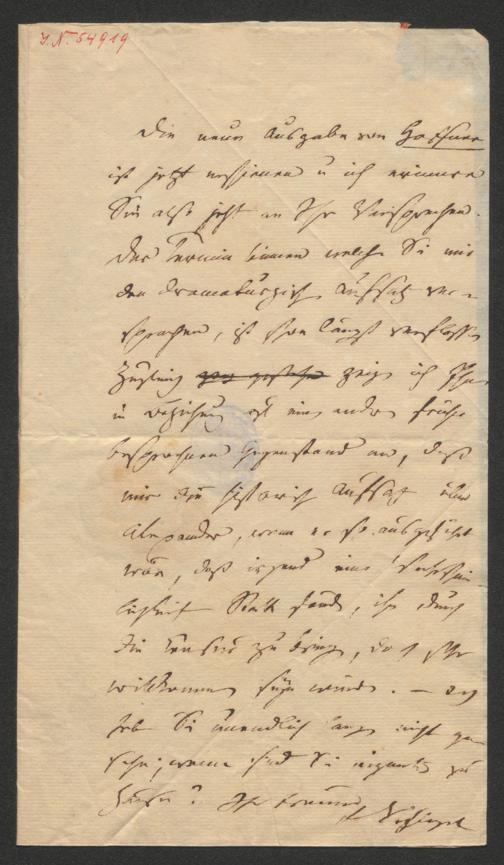 J. N. 54919
Die neue Ausgabe von Hafner
ist jetzt erschienen u ich erinnere
Sie also jetzt an Ihr Versprechen.
Der Termin binnen welchem Sie mir
den dramaturgisch Aufsatz ver-
sprochen, ist schon längst verflossen
Zugleich zeige ich Ihnen
in Beziehung auf einen andern früher
besprochenen Gegenstand an, daß
mir Ihr historisch Aufsatz über
Alexander, wenn er so ausgeführt
wäre, daß irgend eine Wahrschein-
lichkeit Statt fände, ihn durch
die Censur zu bringen, da sehr
willkommen seyn würde. – Ich
habe Sie unendlich lange nicht ge-
sehn; wann sind Sie zu
Hause? Ihr